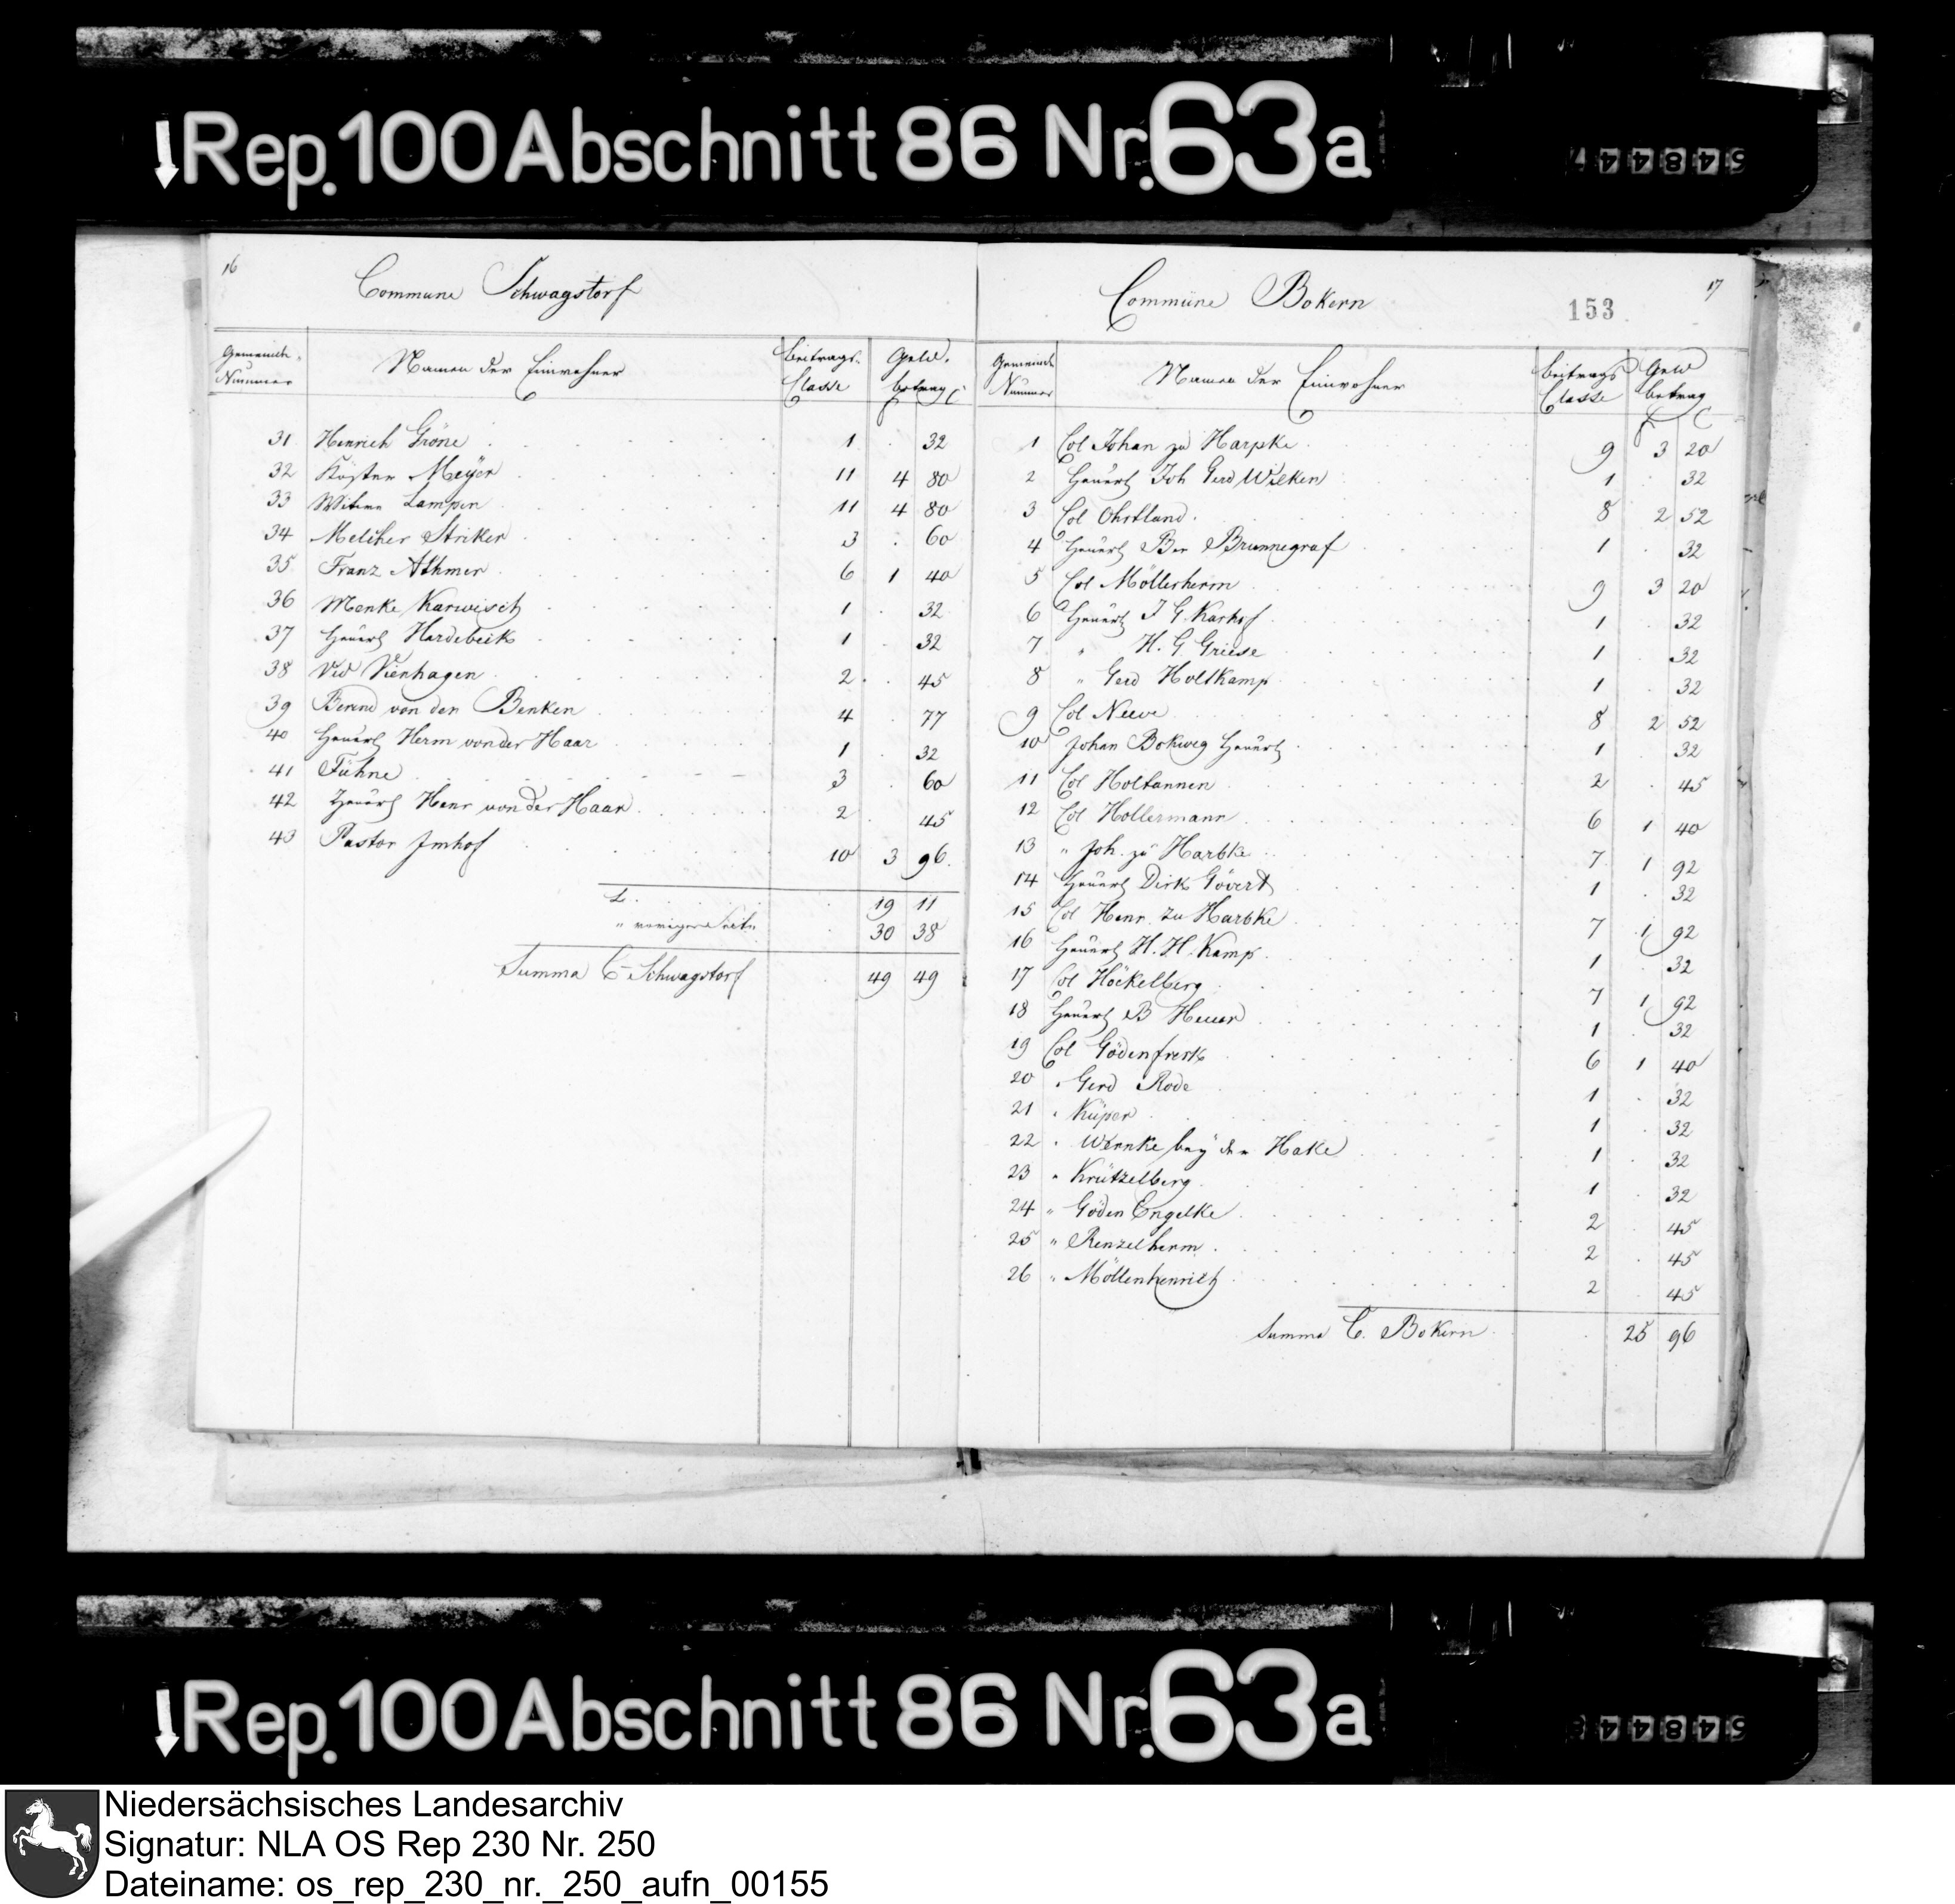 Rep. 100 Abschnitt 86 Nr. 63a
16
Commune Schwagstorf
Gemeinde Nummer
Namen der Einwohner
Beitrags- Classe
Geld betrag
31 Henrich Gröne 1 32
32 Köster Meÿer 11 4 80
33 Witwe Lampen 11 4 80
34 Melcher Striker 3 60
35 Franz Athmer 6 1 40
36 Menke Karwisch 1 32
37 Heuerl Hardebeck 1 32
38 Vienhagen 2 45
39 Berend von der Benken 4 77
40 Heuerl Herm von der Haar 1 32
41 Fühne 3 60
42 Heuerl Henr von der Haar 2 45
43 Pastor Imhof 10 3 96
19 11
" voriger Seite 30 38
Summa C Schwagstorf 49 49
17
Commüne Bokern
153
Gemeinde Nummer
Namen der Einwohner
Beitrags Classe
Geld betrag
1 Col Johan zu Harpke 9 3 20
2 Heuerl Joh Gerd Wilken 1 32
3 Col Ohrtland 8 2 52
4 Heuerl Ber Brunnegraf 1 32
5 Col Möllerherm 9 3 20
6 Heuerl J G. Karhof 1 32
7 " H. G. Griese 1 32
8 " Gerd Holtkamp 1 32
9 Col Neeve 8 2 52
10 Johan Bokweg Heuerl 1 32
11 Col Holtannen 2 45
12 Col Hollermann 6 1 40
13 " Joh. zu Harbke 7 1 92
14 Heuerl Dirk Gövert 1 32
15 Col Henr. zu Harbke 7 1 92
16 Heuerl H. H. Kamp 1 32
17 Col Höckelberg 7 1 92
18 Heuerl B Heuer 1 32
19 Col Gödenfrerk 6 1 40
20 " Gerd Rode 1 32
21 " Küper 1 32
22 " Wernke bey der Hake 1 32
23 " Krützelberg 1 32
24 " Göden Engelke 2 45
25 " Renzelherm 2 45
26 " Möllenhenrich 2 45
Summa C. Bokern 25 96
Rep. 100 Abschnitt 86 Nr. 63a
Niedersächsisches Landesarchiv
Signatur: NLA OS Rep 230 Nr. 250
Dateiname: os_rep_230_nr._250_aufn_00155